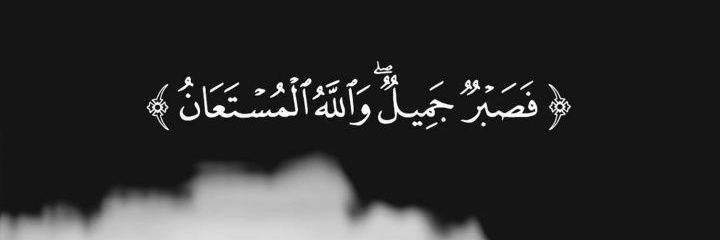 ﴿ فَصَبۡرٌ جَمِيلٌۖ وَٱللَّهُ ٱلۡمُسۡتَعَانُ ﴾